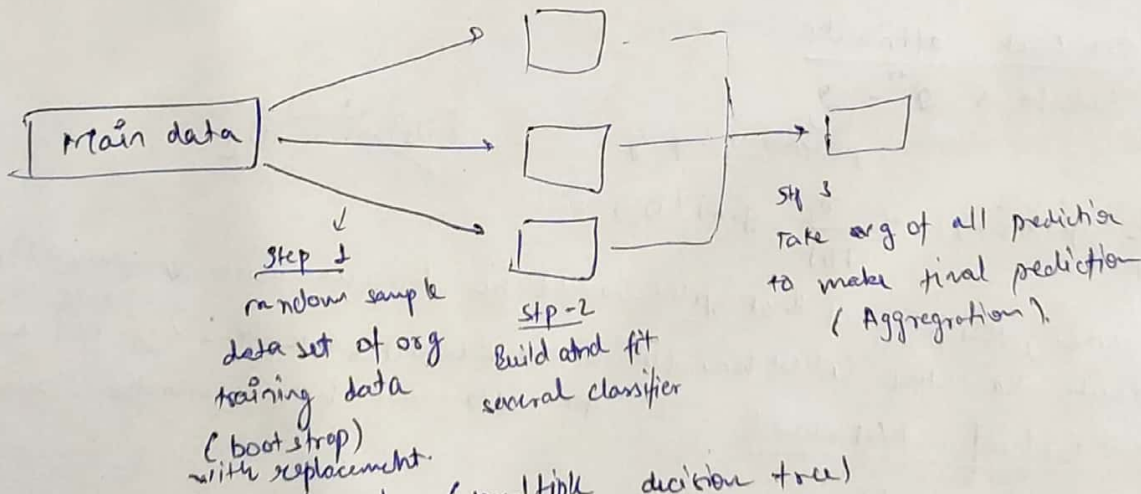 Main data
Step 1
random sample
data set of org
training data
(bootstrap)
with replacement.
Stp-2
Build and fit
several classifier
Stp 3
Take avg of all prediction
to make final prediction
(Aggregration).
decision tree)